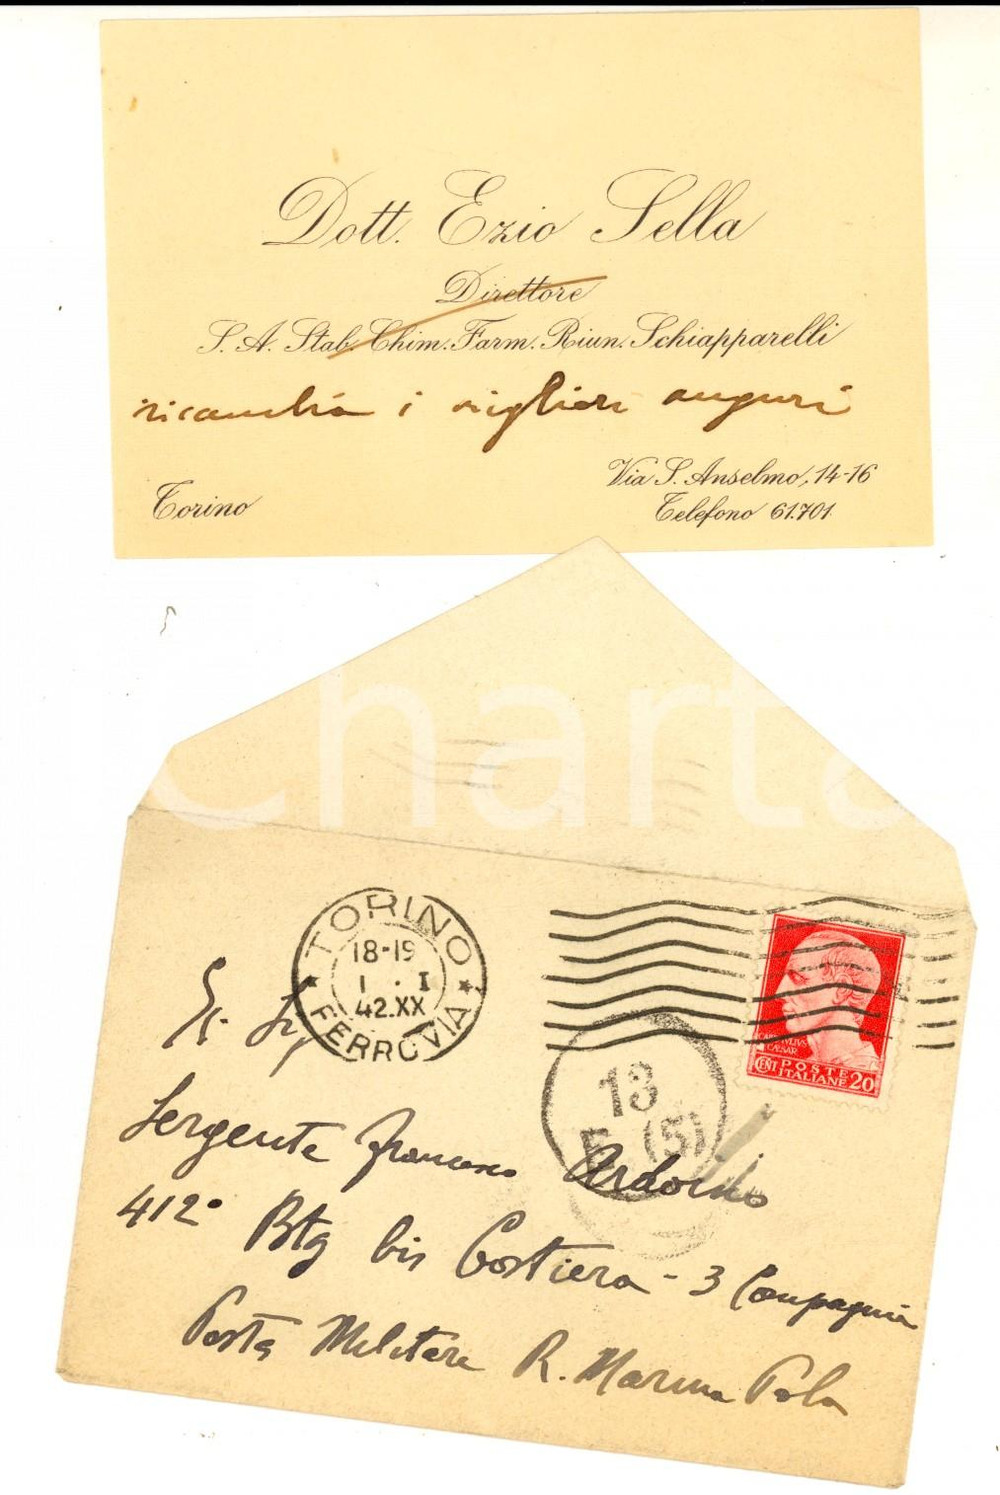 Dott. Ezio Sella
Direttore
S. A. Stab. Chim. Farm. Riun. Schiapparelli
ricambia i migliori auguri
Via S. Anselmo, 14-16
Torino
Telefono 61.701
Charta
TORINO
18-19
1 . I
42.XX
FERROVIA
CENT POSTE ITALIANE 20
13
(5)
Sergente Francesco Ardoino
412° Btg bis Costiera - 3 Compagnia
Posta Militare R. Marina Pola